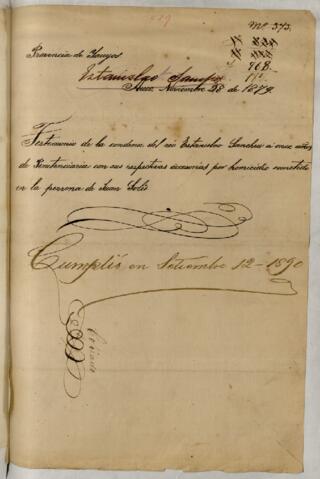 Nº 373.
Provincia de
768
Estanislao
Noviembre 28 de 1879.
Testimonio de la condena del reo Estanislao Sanchez a once años
de Penitenciaria con sus respectivas accesorias por homicidio cometido
en la persona de Juan Solis
Cumplió en Setiembre 12-1890